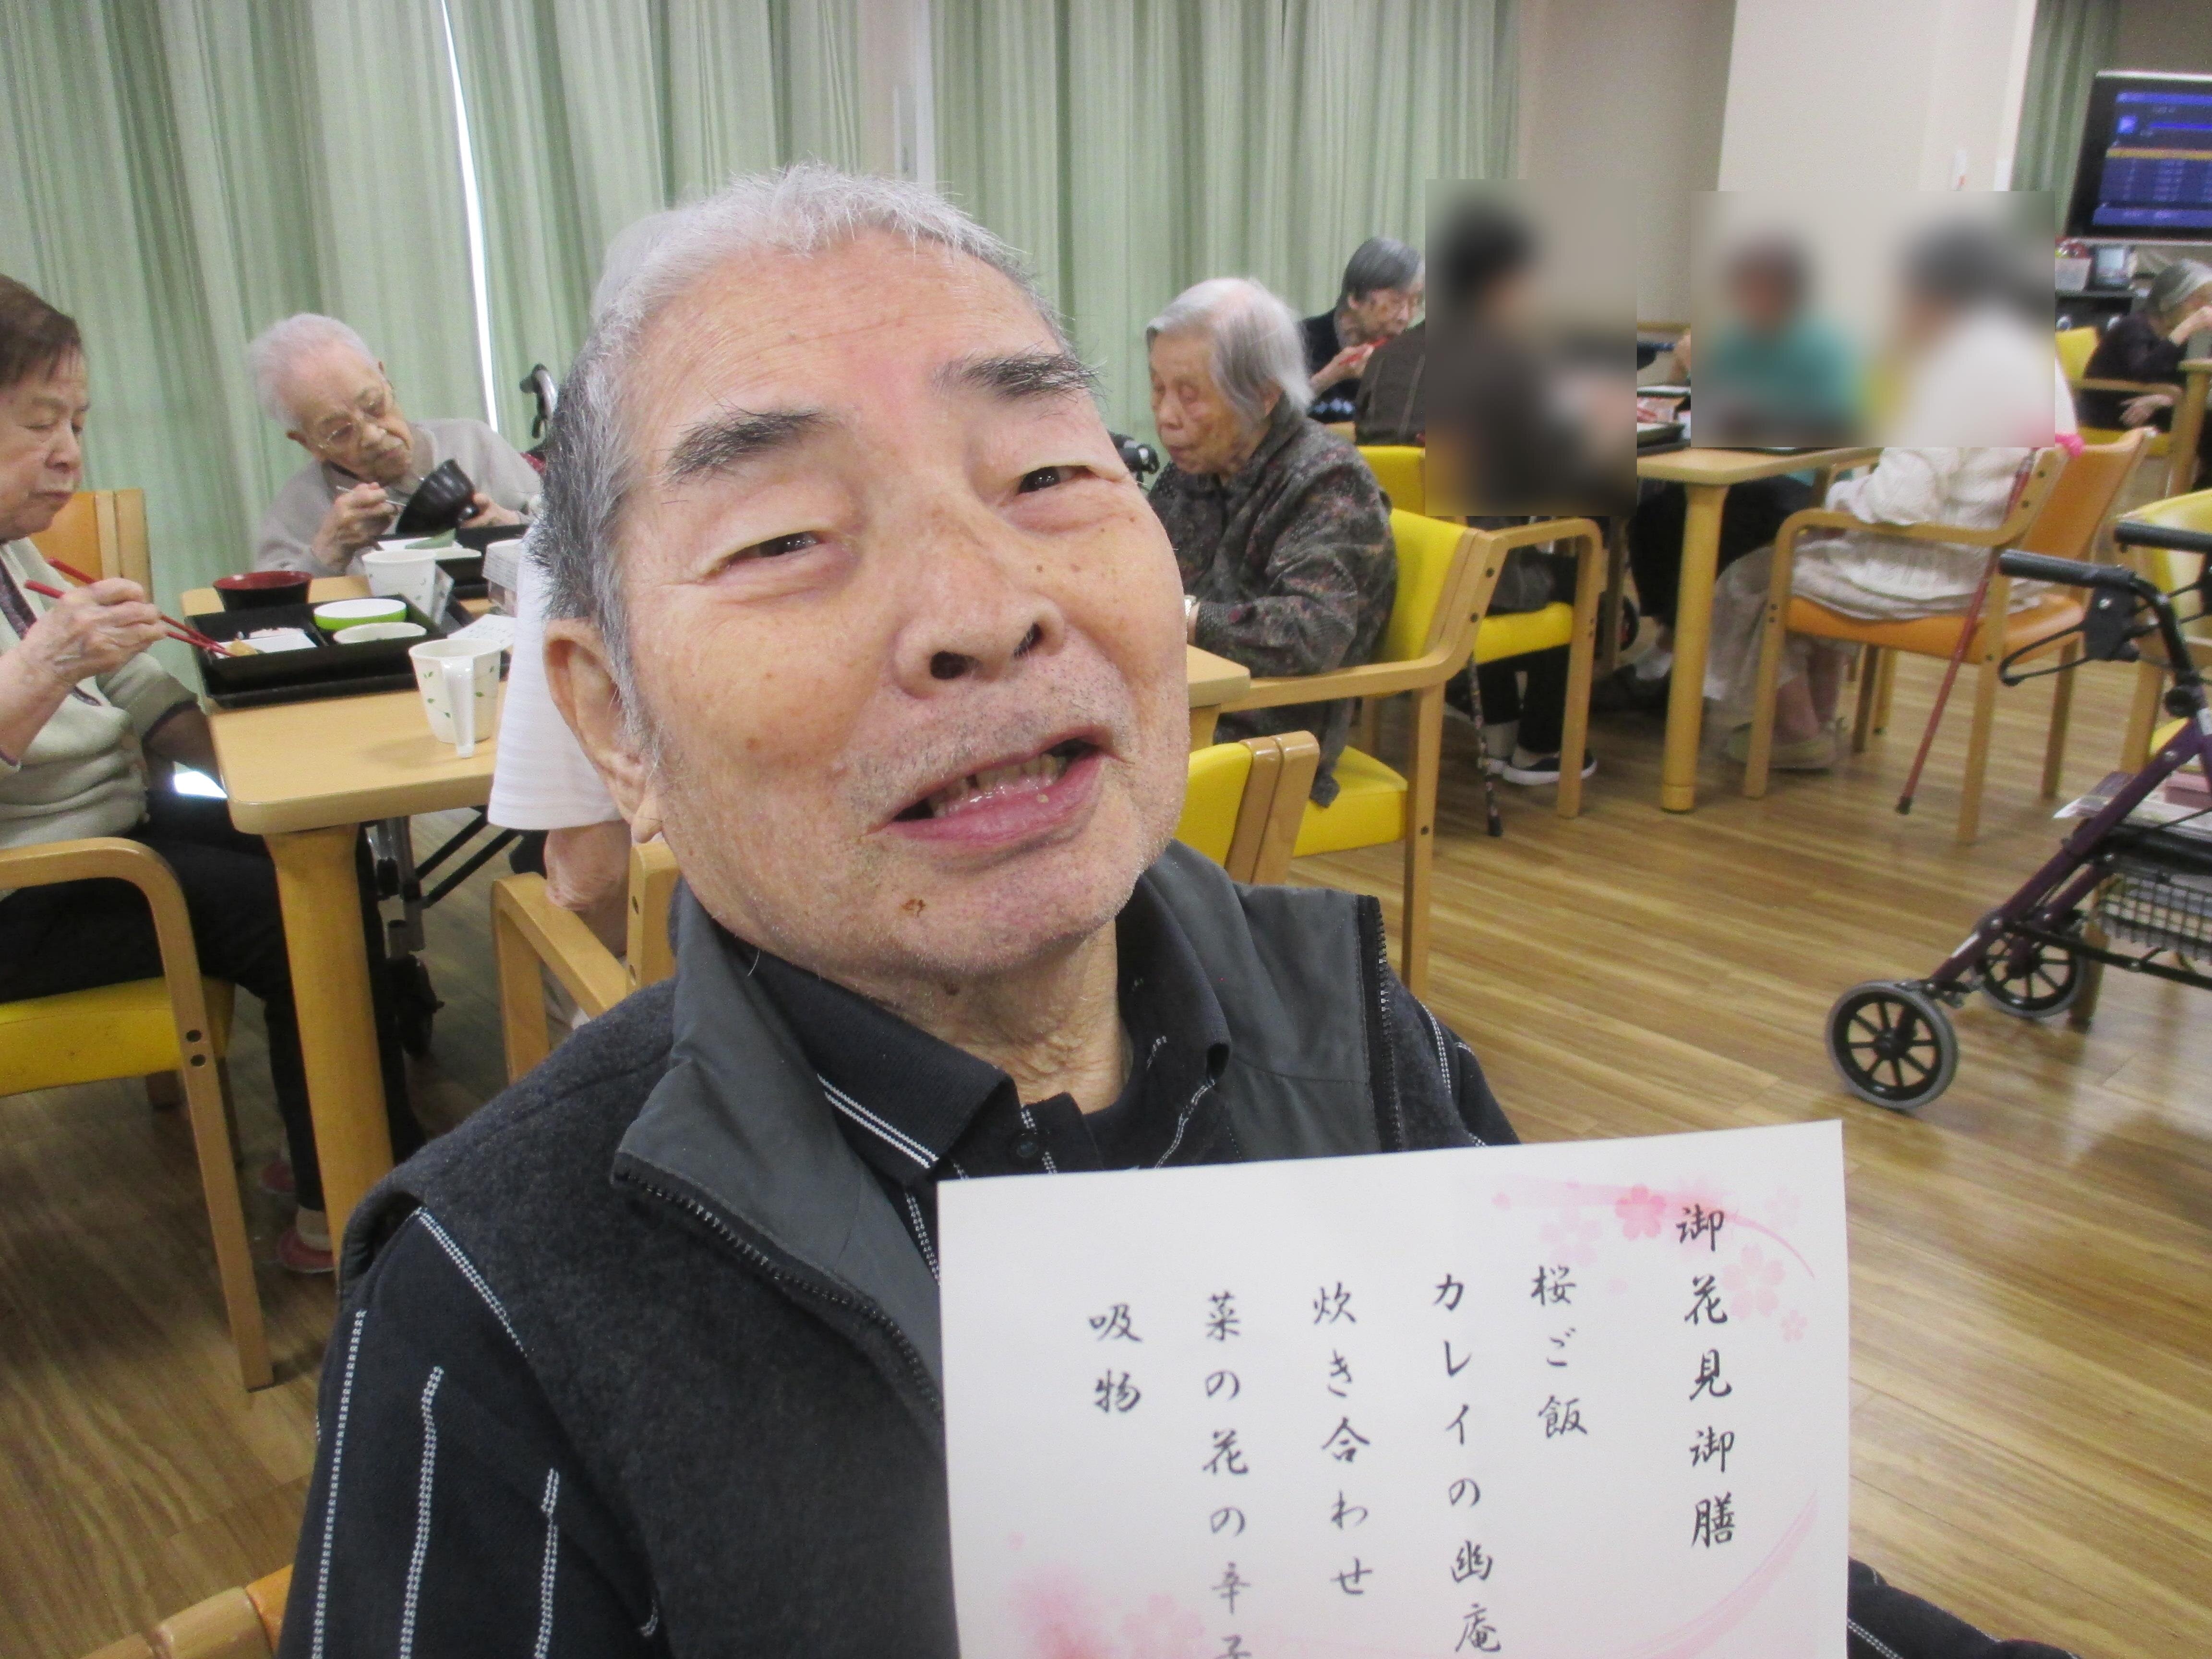 御花見御膳
桜ご飯
カレイの幽庵
炊き合わせ
菜の花の辛子
吸物